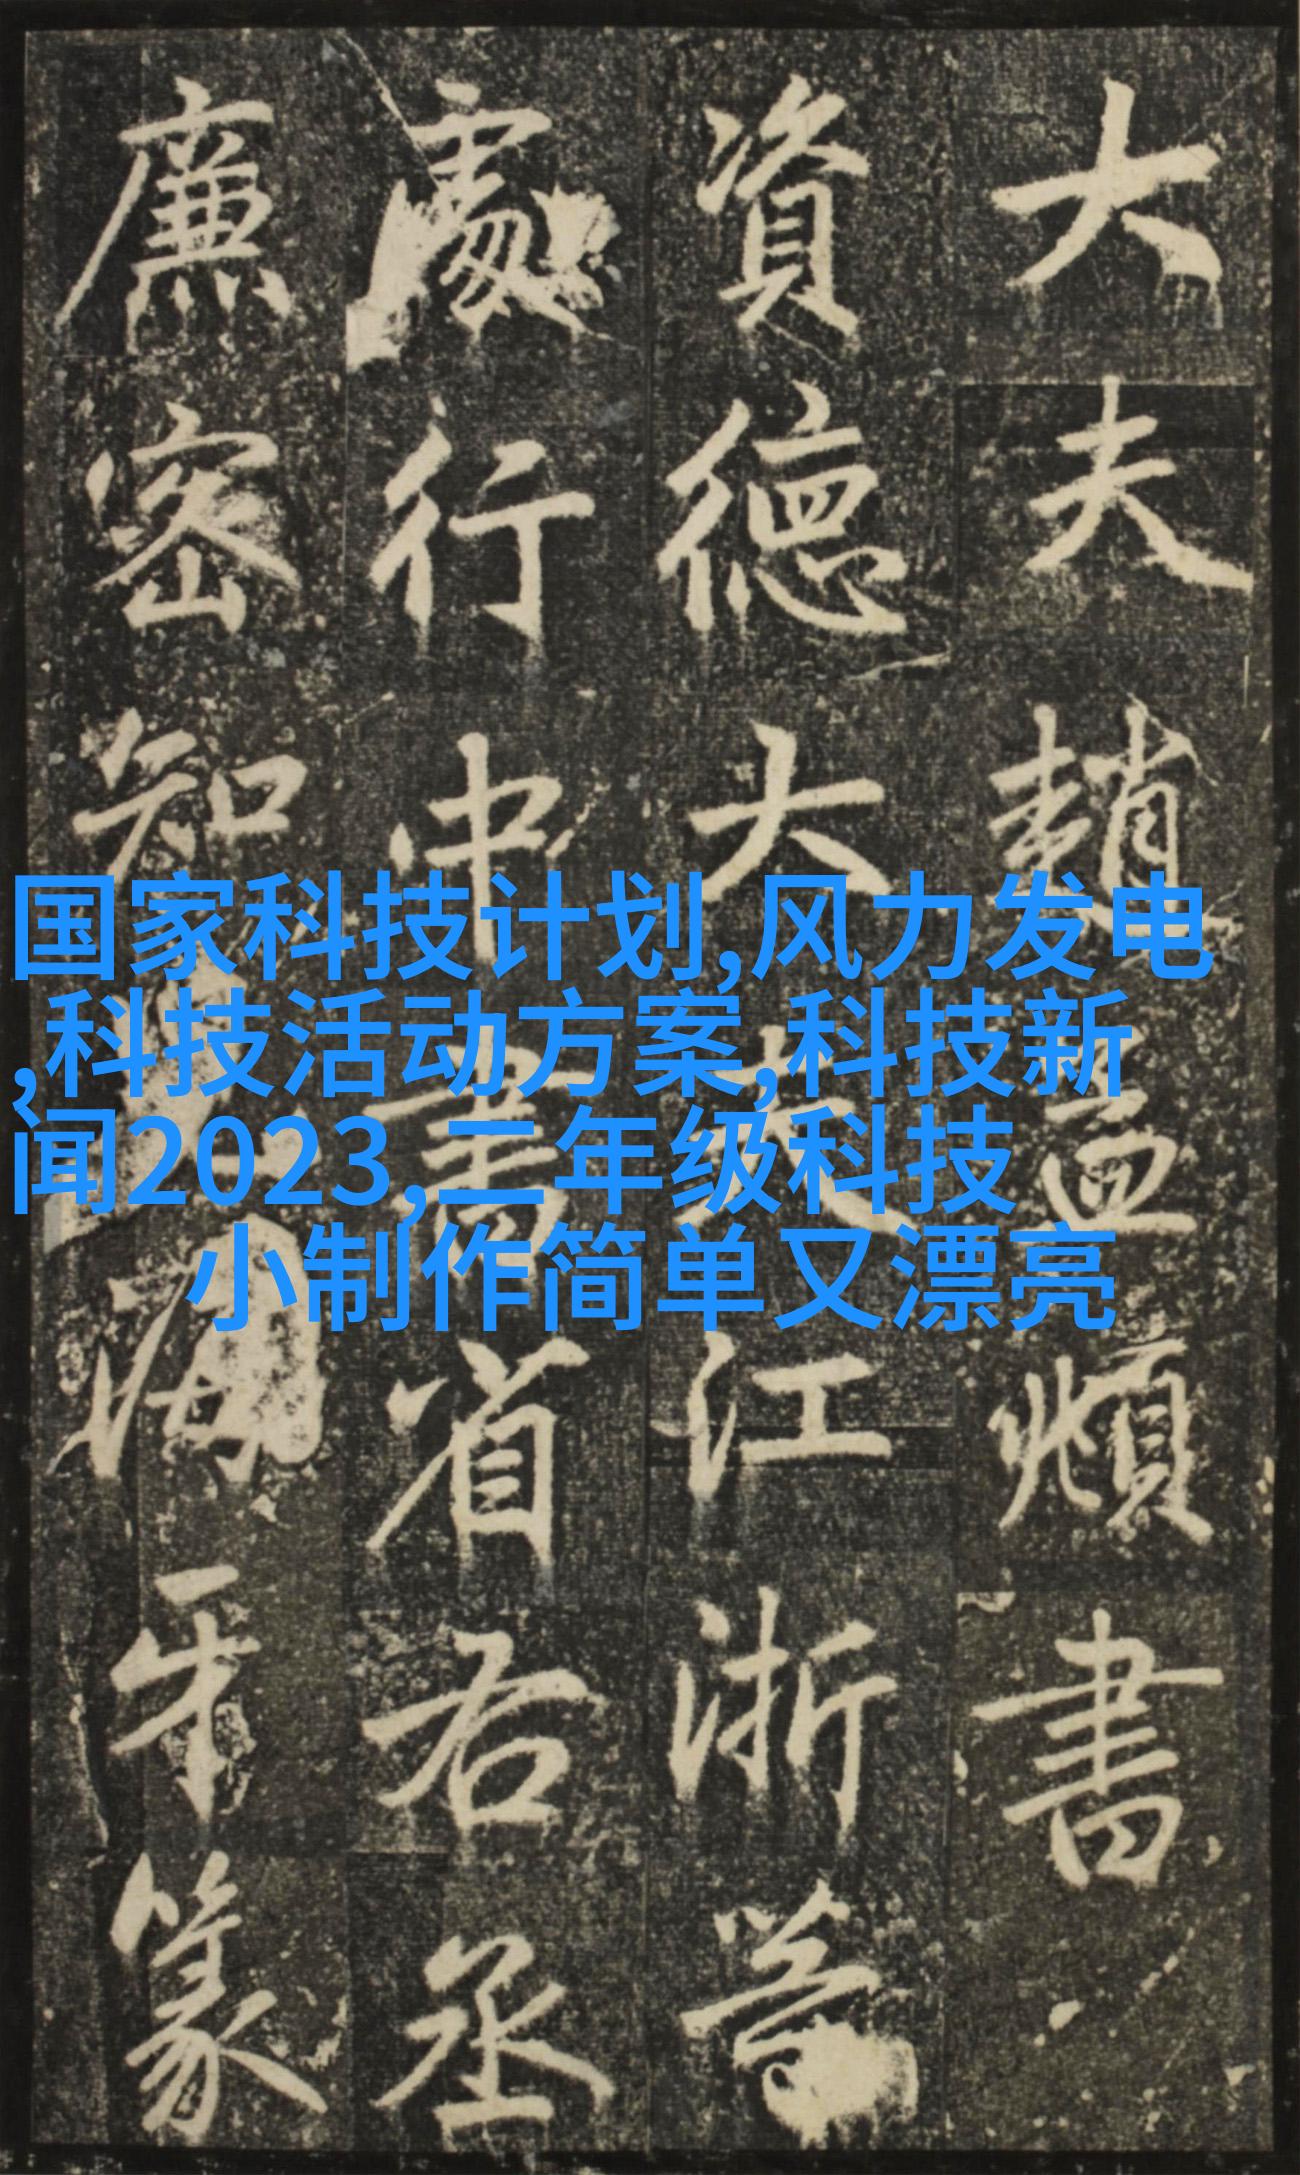 大夫趙孟頫書
資德大夫江浙等
處行中書省右丞
廉密知海牙篆
国家科技计划,风力发电
,科技活动方案,科技新
闻2023,二年级科技
小制作简单又漂亮